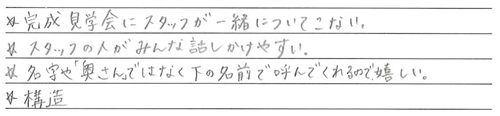 ☆完成見学会にスタッフが一緒についてこない。
☆スタッフの人がみんな話しかけやすい。
☆名字や「奥さん」ではなく下の名前で呼んでくれるので嬉しい。
☆構造